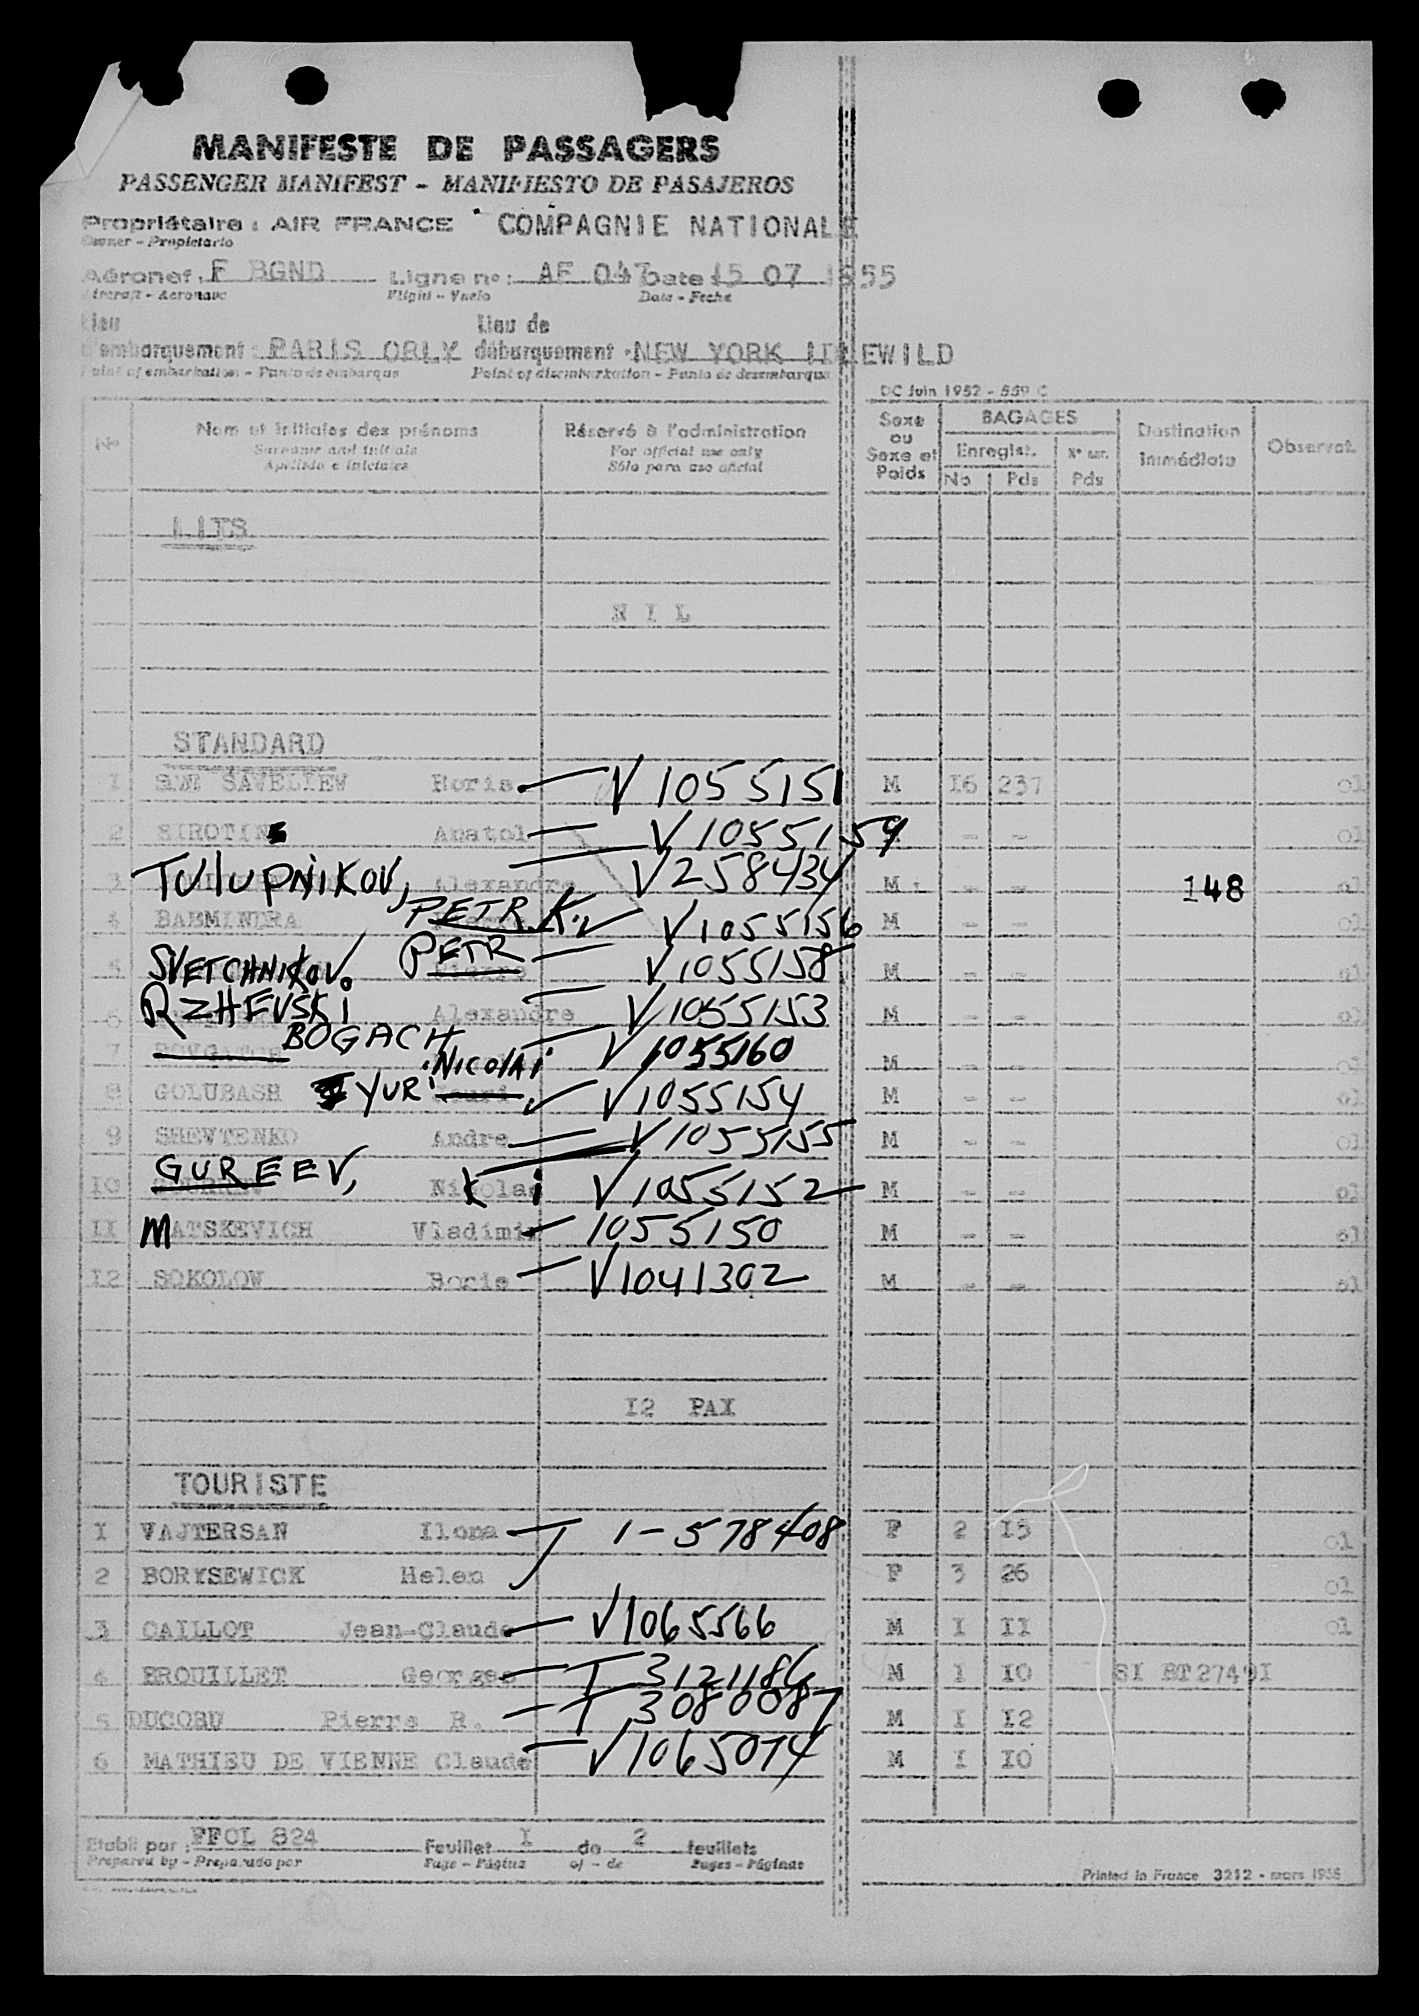 MANIFESTE DE PASSAGERS
PASSENGER MANIFEST - MANIFIESTO DE PASAJEROS
Propriétaire : AIR FRANCE COMPAGNIE NATIONALE
Owner - Propietario
Aéronef : F BGND Ligne nº : AF 047 Date 15 07 1955
Aircraft - Aeronave Flight - Vuelo Date - Fecha
Lieu Lieu de
d'embarquement : PARIS ORLY débarquement : NEW YORK IDLEWILD
Point of embarkation - Punto de embarque Point of disembarkation - Punto de desembarque
DC Juin 1952 - 559 C
Nº Nom et initiales des prénoms Réservé à l'administration Sexe ou Sexe et Poids BAGAGES Destination immédiate Observat.
Surname and initials For official use only Enregist. Nº sur.
Apellido e iniciales Sólo para uso oficial No Pds Pds
LITS
N I L
STANDARD
1 SAVELIEW Boris V 1055151 M 16 237 01
2 SIROTIN Anatol V 1055159 - - 01
3 TULUPNIKOV, Alexandre V 258434 M - - 148 01
4 PETR K. V 1055156 M 01
5 SVETCHNIKOV. PETR Pierre V 1055158 M - - 01
6 RZHEVSKI Alexandre V 1055153 M - - 01
7 BOGACH NICOLAI V 1055160 M 01
8 GOLUBASH YURI V 1055154 M - - 01
9 SHEVTENKO Andre V 1055155 M - - 01
10 GUREEV, Nicolas K i V 1055152 M - - 01
11 MATSKEVICH Vladimir 1055150 M - - 01
12 SOKOLOW Boris V 1041302 M - - 01
12 PAX
TOURISTE
1 VAJTERSAN Ilona 1-578408 F 2 15 01
2 BORYSEWICK Helen F 3 26 01
3 CAILLOT Jean-Claude V 1065566 M 1 11 01
4 BROUILLET Georges T 3121186 M 1 10 SI BT27491
5 DUCORU Pierre R. T 3080087 M 1 12
6 MATHIEU DE VIENNE Claude V 1065074 M 1 10
Etabli par : FFOL 824 Feuillet 1 de 2 feuillets
Prepared by - Preparado por Page - Página of - de Pages - Páginas
Printed in France 3212 - mars 1955